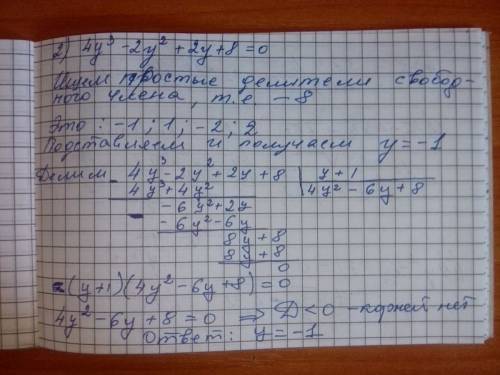 2) 4y³ - 2y² + 2y + 8 = 0
Ищем простые делители свобод-
ного члена, т.е. - 8
Это: -1; 1; -2; 2
Подставляем и получаем y = -1
Делим 4y³ - 2y² + 2y + 8 | y + 1
4y³ + 4y² 4y² - 6y + 8
- 6y² + 2y
- 6y² - 6y
8y + 8
8y + 8
0
(y+1)(4y² - 6y + 8) = 0
4y² - 6y + 8 = 0 ⇒ D < 0 - корней нет
Ответ: y = -1